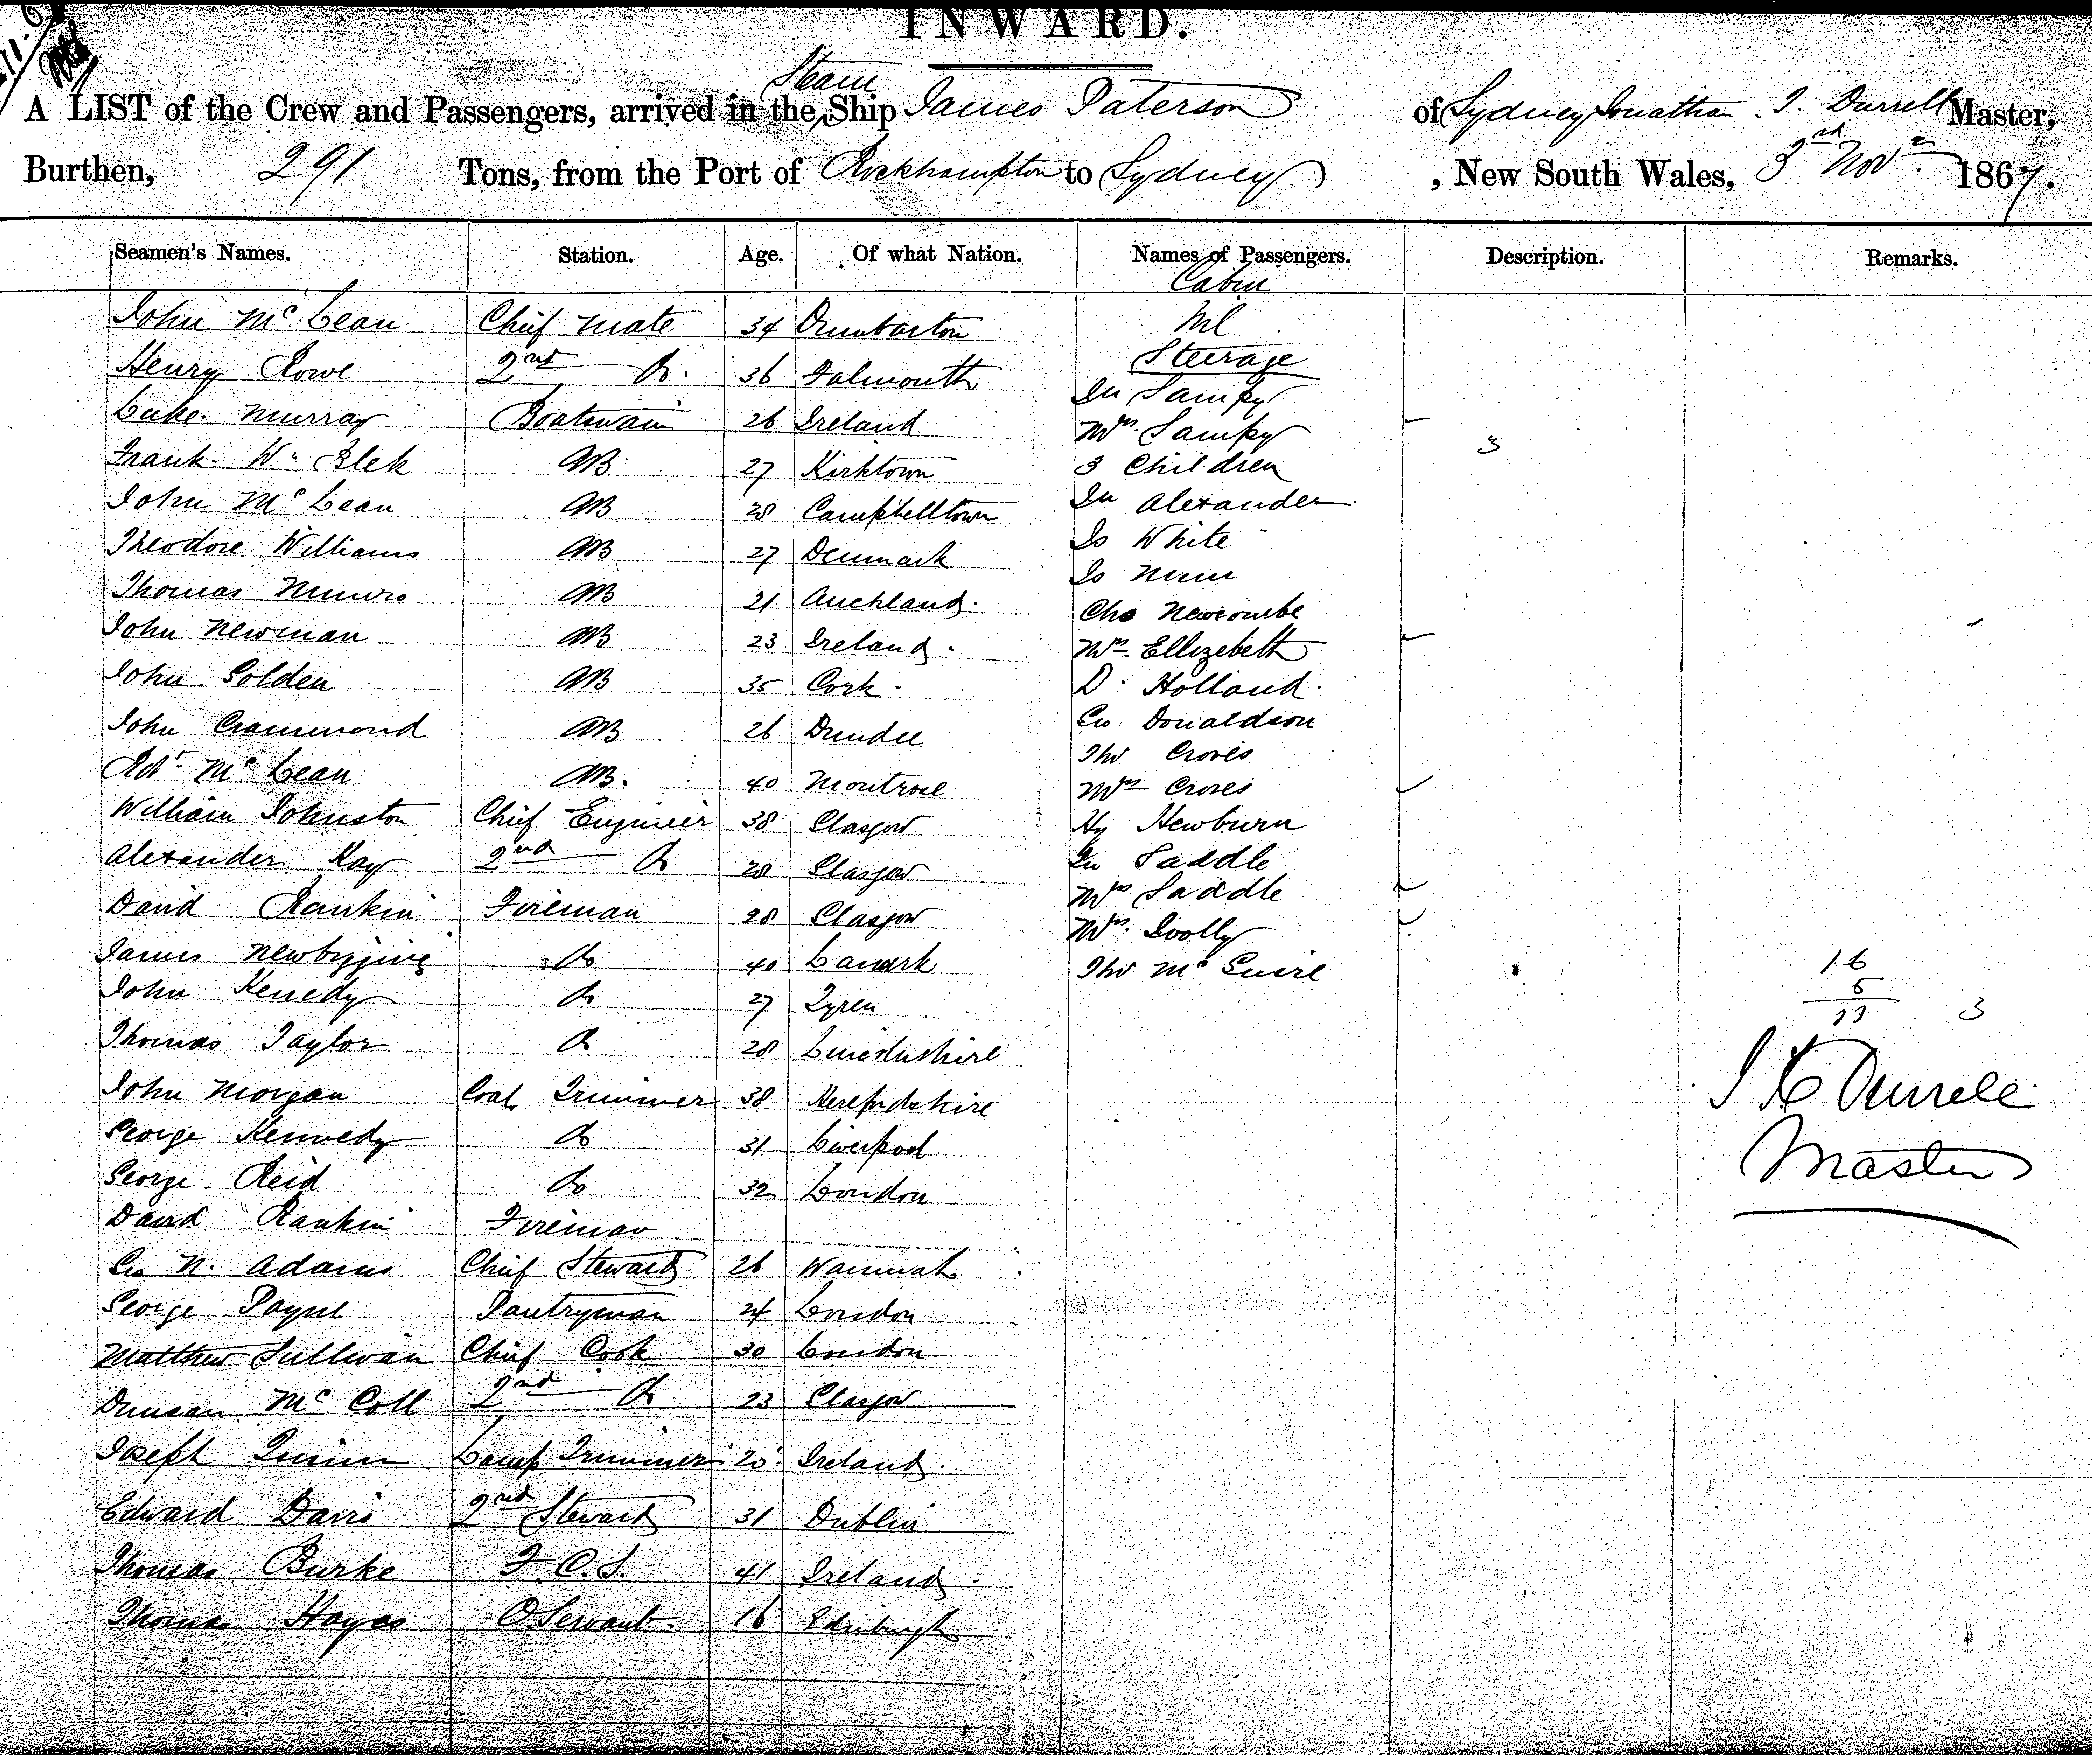 INWARD.
Steam
A LIST of the Crew and Passengers, arrived in the Ship James Paterson of Sydney Jonathan Durrell Master,
Burthen, 291 Tons, from the Port of Rockhampton to Sydney, New South Wales, 3rd Novr 1867.
Seamen's Names. Station. Age. Of what Nation. Names of Passengers. Description. Remarks.
Cabin
John McLean Chief Mate 34 Dumbarton Nil
Steerage
Henry Rowe 2nd Do. 36 Falmouth Jn Sampy
Luke Murray Boatswain 26 Ireland Mrs Sampy
Frank Wm Elek AB 27 Kirktown 3 Children 3
John McLean AB 28 Campbelltown Jn Alexander
Theodore Williams AB 27 Denmark Js White
Thomas Munro AB 21 Auckland. Js
Chs Newcombe
John Newman AB 23 Ireland. Mrs Ellizebeth
John Golden AB 35 Cork. D. Holland.
John Crammond AB 26 Dundee Geo Donaldson
Thos Croves
Robt McLean AB. 40 Montrose Mrs Croves
William Johnston Chief Engineer 38 Glasgow Hy Hewburn
Alexander Kay 2nd Do 28 Glasgow Saddle
David Rankin Fireman 28 Glasgow Mrs Saddle
Mrs
James Newbigging Do 40 Lanark Thos McGuire 16
John Kenedy Do 27
Thomas Taylor Do 28 Lincolnshire
John Morgan Coal Trimmer 38 Herefordshire Durrell
George Kennedy Do 31 Liverpool
George Reid Do 32 London Master
David Rankin Fireman
Geo N. Adams Chief Steward 26
George Payne Pantryman 24 London
Matthew Sullivan Chief Cook 30 London
Duncan McColl 2nd Do 23 Glasgow
Joseph Quinn Lamp Trimmer 20 Ireland.
Edward Davis 2nd Steward 31 Dublin
Thomas Burke F.C.S. 41 Ireland.
Thomas Hayes O Servant. 16 Edinburgh